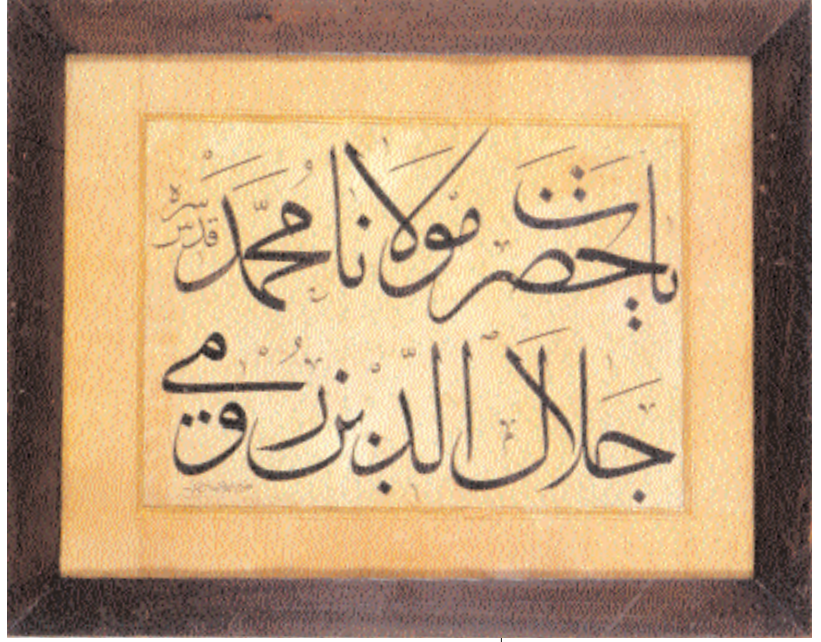 يا حضرت مولانا محمد قدس سره
جلال الدين رومي